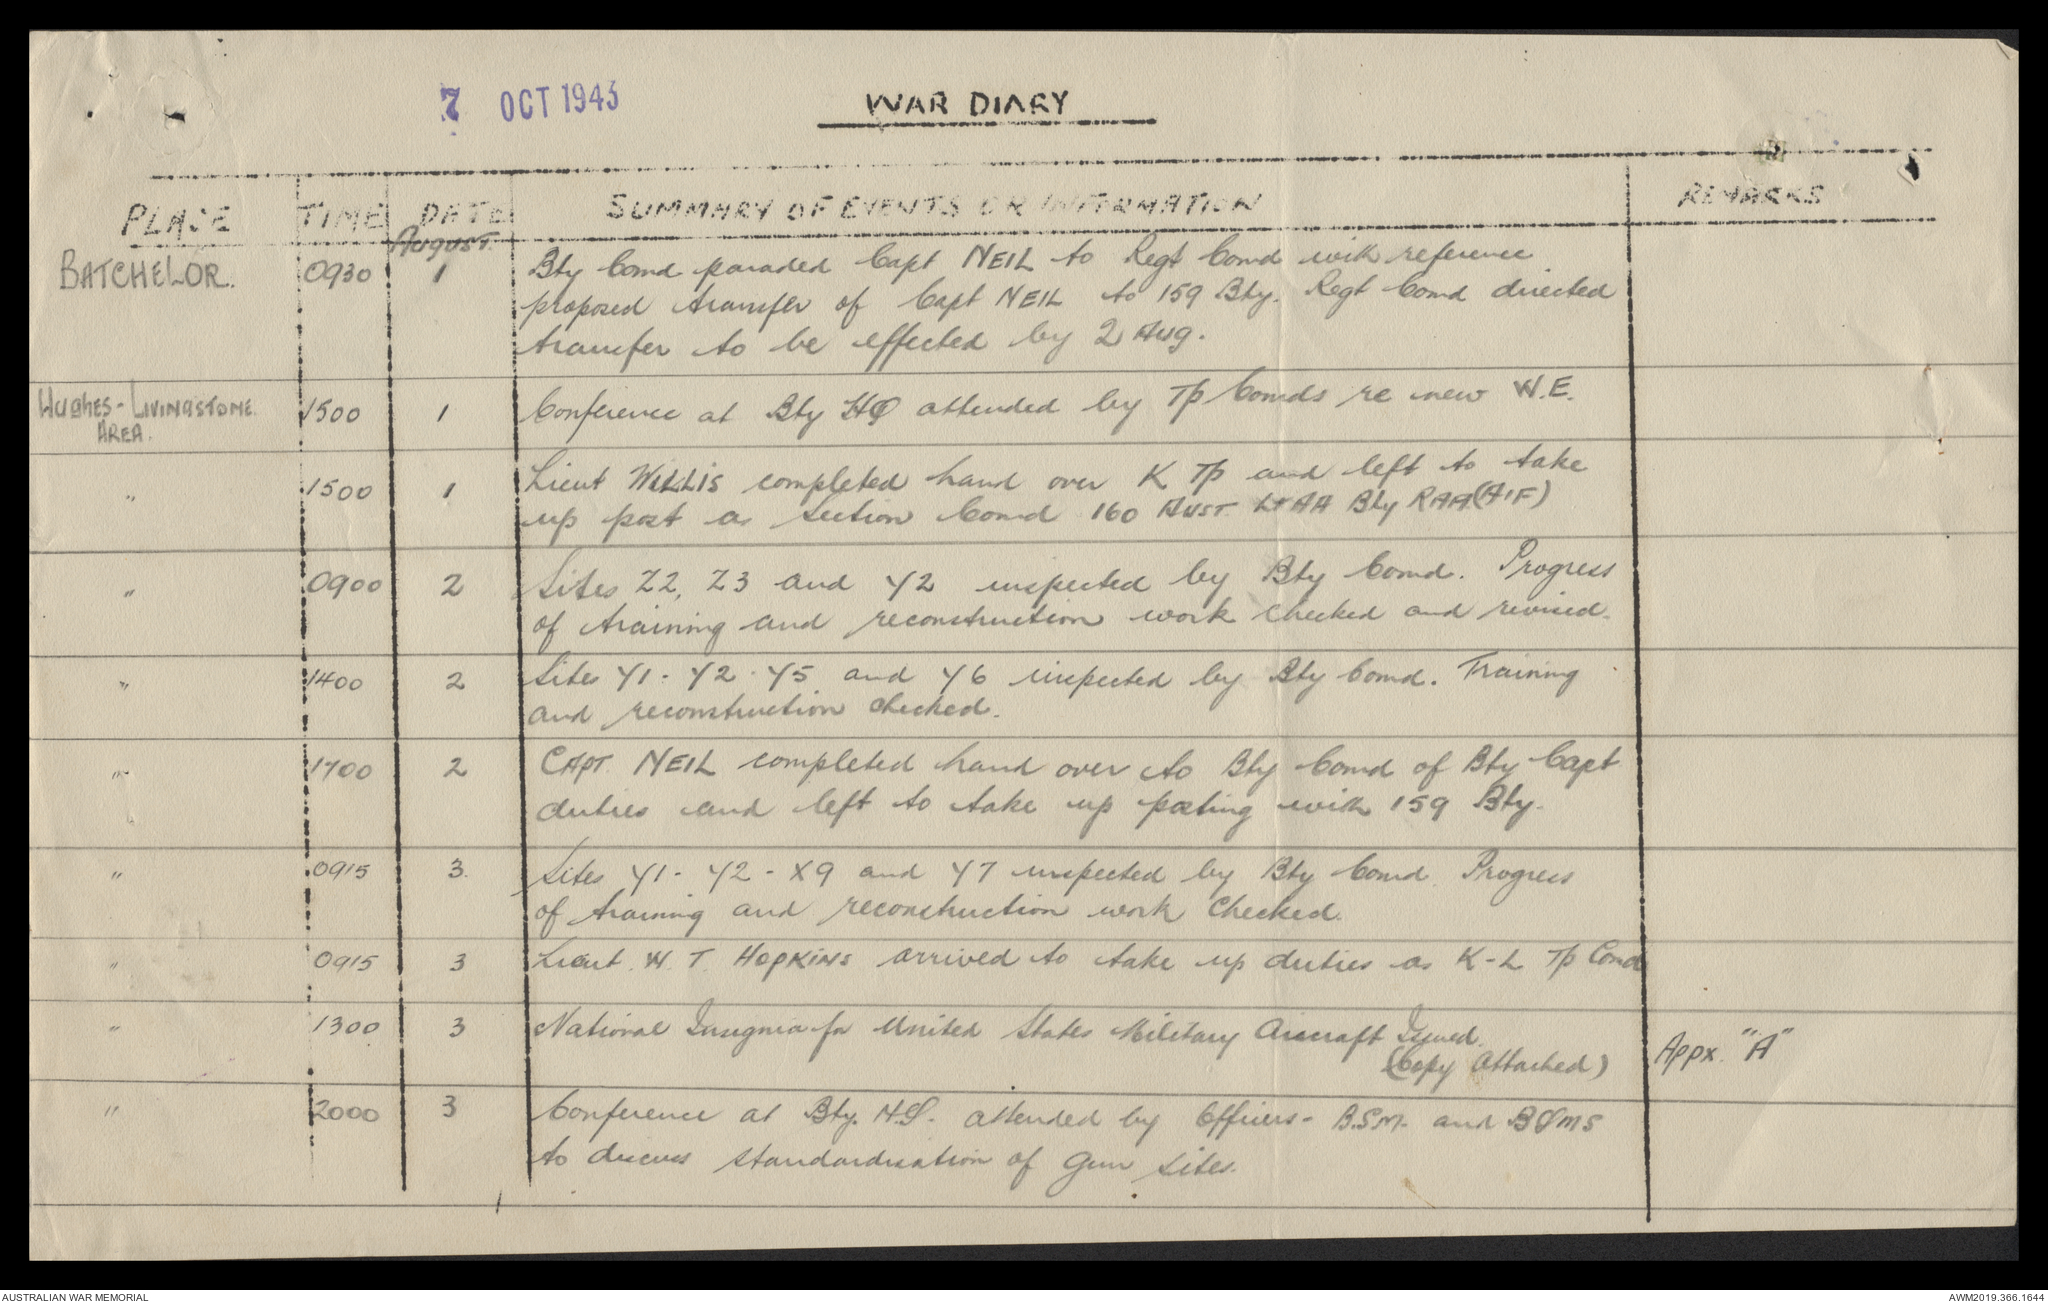 7 OCT 1943
WAR DIARY
PLACE TIME DATE SUMMARY OF EVENTS OR INFORMATION REMARKS
August.
BATCHELOR. 0930 1 Bty Comd paraded Capt NEIL to Regt Comd with reference
proposed transfer of Capt NEIL to 159 Bty. Regt Comd directed
transfer to be effected by 2 Aug.
HUGHES-LIVINGSTONE. 1500 1 Conference at Bty HQ attended by Tp Comds re new W.E.
AREA.
" 1500 1 Lieut WILLIS completed hand over K Tp and left to take
up post as Section Comd 160 AUST LtAA Bty RAA(AIF)
" 0900 2 Sites Z2, Z3 and Y2 inspected by Bty Comd. Progress
of training and reconstruction work checked and revised.
" 1400 2 Sites Y1 - Y2 - Y5 and Y6 inspected by Bty Comd. Training
and reconstruction checked.
" 1700 2 CAPT. NEIL completed hand over to Bty Comd of Bty Capt
duties and left to take up posting with 159 Bty.
" 0915 3. Sites Y1 - Y2 - X9 and Y7 inspected by Bty Comd. Progress
of training and reconstruction work checked.
" 0915 3 Lieut. W. T. HOPKINS arrived to take up duties as K-L Tp Comd
" 1300 3 National Insignia for United States Military Aircraft Issued.
(Copy attached) Appx. "A"
" 2000 3 Conference at Bty. H.Q. attended by Officers - B.S.M. and BQMS
to discuss standardisation of gun sites.
AUSTRALIAN WAR MEMORIAL AWM2019.366.1644